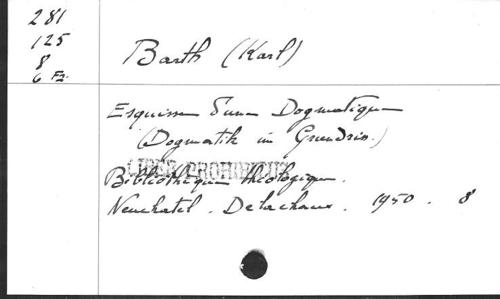 281
125
8
6 Fz.
Barth (Karl)
Esquisse d'une Dogmatique
(Dogmatik im Grundriss.)
LIBRI PROHIBITI
Bibliothèque théologique.
Neuchatel. Delachaux. 1950. 8